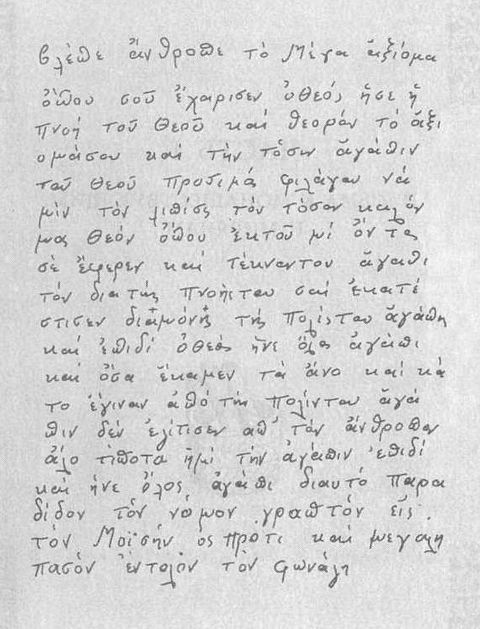 βλέπε ἄνθροπε τὸ Μέγα ἀξίομα
ὁποῦ σοῦ ἐχάρισεν ὁ θεός ἦσε ἡ
πνοή τοῦ Θεοῦ καί θεορόν τὸ ἀξι
ομάσου καί τὴν τόσιν ἀγάπιν
τοῦ Θεοῦ προτιμά φιλάγου νά
μὶν τὸν λιπίσις τὸν τόσον καλόν
μας Θεόν ὁποῦ ἐκτοῦ μί ὄντος
σὲ ἔφερεν καί τέκναντου ἀγαπι
τόν διατῆς πνοῆςτου σαί ἐκατέ
στισεν τῆς πολίςτου ἀγάπη
καί ἐπιδί ὁ θεὸς ἦνε ὅλος ἀγάπι
καί ὅσα ἔκαμεν τὰ ἄνο καί κά
το ἐγιναν ἀπό τὴν πολίντου ἀγά
πιν δέν ἐζίτισεν ἀπ᾽ τὸν ἄνθροπον
ἄλο τίποτα ἠμί τὴν ἀγάπιν ἐπιδί
καί ἦνε ὅλος ἀγάπι διαυτό παρα
δίδον τὸν νόμον γραπτόν εἰς
τὸν Μοϊσήν ος προτι καί μεγάλη
πασὸν ἐντολὸν τὸν φωνάζι